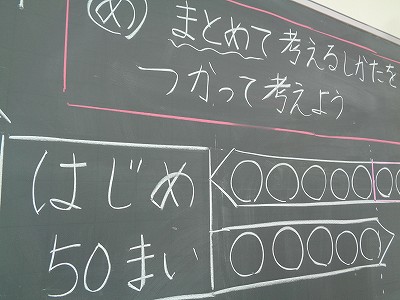 め まとめて考えるしかたを
つかって考えよう
はじめ
50まい